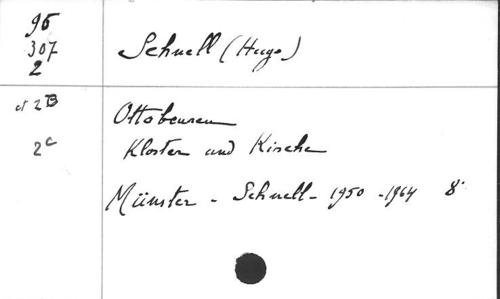 95
307
2
Schnell (Hugo)
et 2B
Ottobeuren
2c
Kloster und Kirche
Münster - Schnell - 1950 - 1964 8°